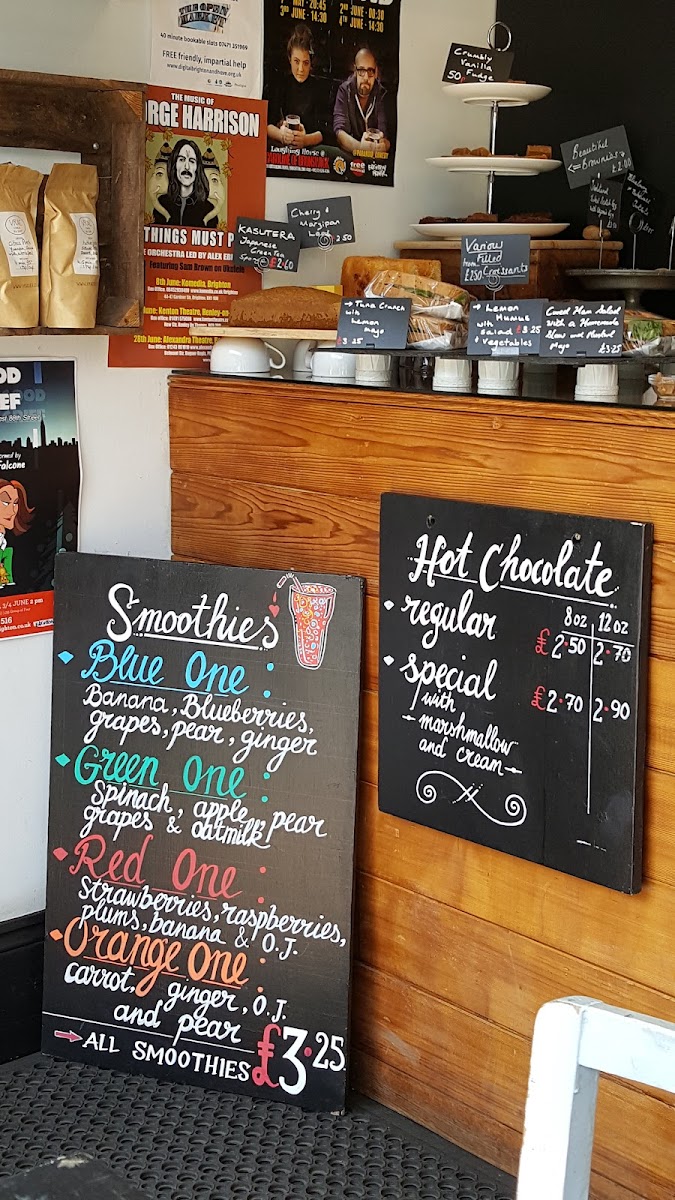 THE OPEN MARKET
40 minute bookable slots 07471 251969
FREE friendly, impartial help
www.digitalbrightonandhove.org.uk
3rd JUNE - 14:30
2nd JUNE - 00:30
4th JUNE - 14:30
Laughing Horse @
THE MUSIC OF
RGE HARRISON
THINGS MUST P
ORCHESTRA LED BY ALEX
Featuring Sam Brown on Ukulele
8th June: Komedia, Brighton
June: Kenton Theatre, Henley-on-
28th June: Alexandra Theatre,
OD
EF
Falcone
3/4 JUNE
516
Crumbly
Vanilla
50 Fudge
Beautiful
Brownies
£2
KASUTERA
Japanese
Green Tea
£2.60
Cherry &
Marzipan
2.50
Various
Filled
£2.50 Croissants
Tuna Crunch
with
Lemon
Mayo
3.25
Lemon Humus
with
Salad £3.25
Vegetables
Cured Ham Salad
with a Homemade
and Mustard
Mayo £3.25
Hot Chocolate
8oz 12oz
regular £2.50 2.70
special £2.70 2.90
with
marshmallow
and cream
Smoothies
Blue One:
Banana, Blueberries,
grapes, pear, ginger
Green One:
Spinach, apple, pear
grapes & oatmilk
Red One:
Strawberries, raspberries,
plums, banana & O.J.
Orange One:
carrot, ginger, O.J.
and pear
ALL SMOOTHIES £3.25